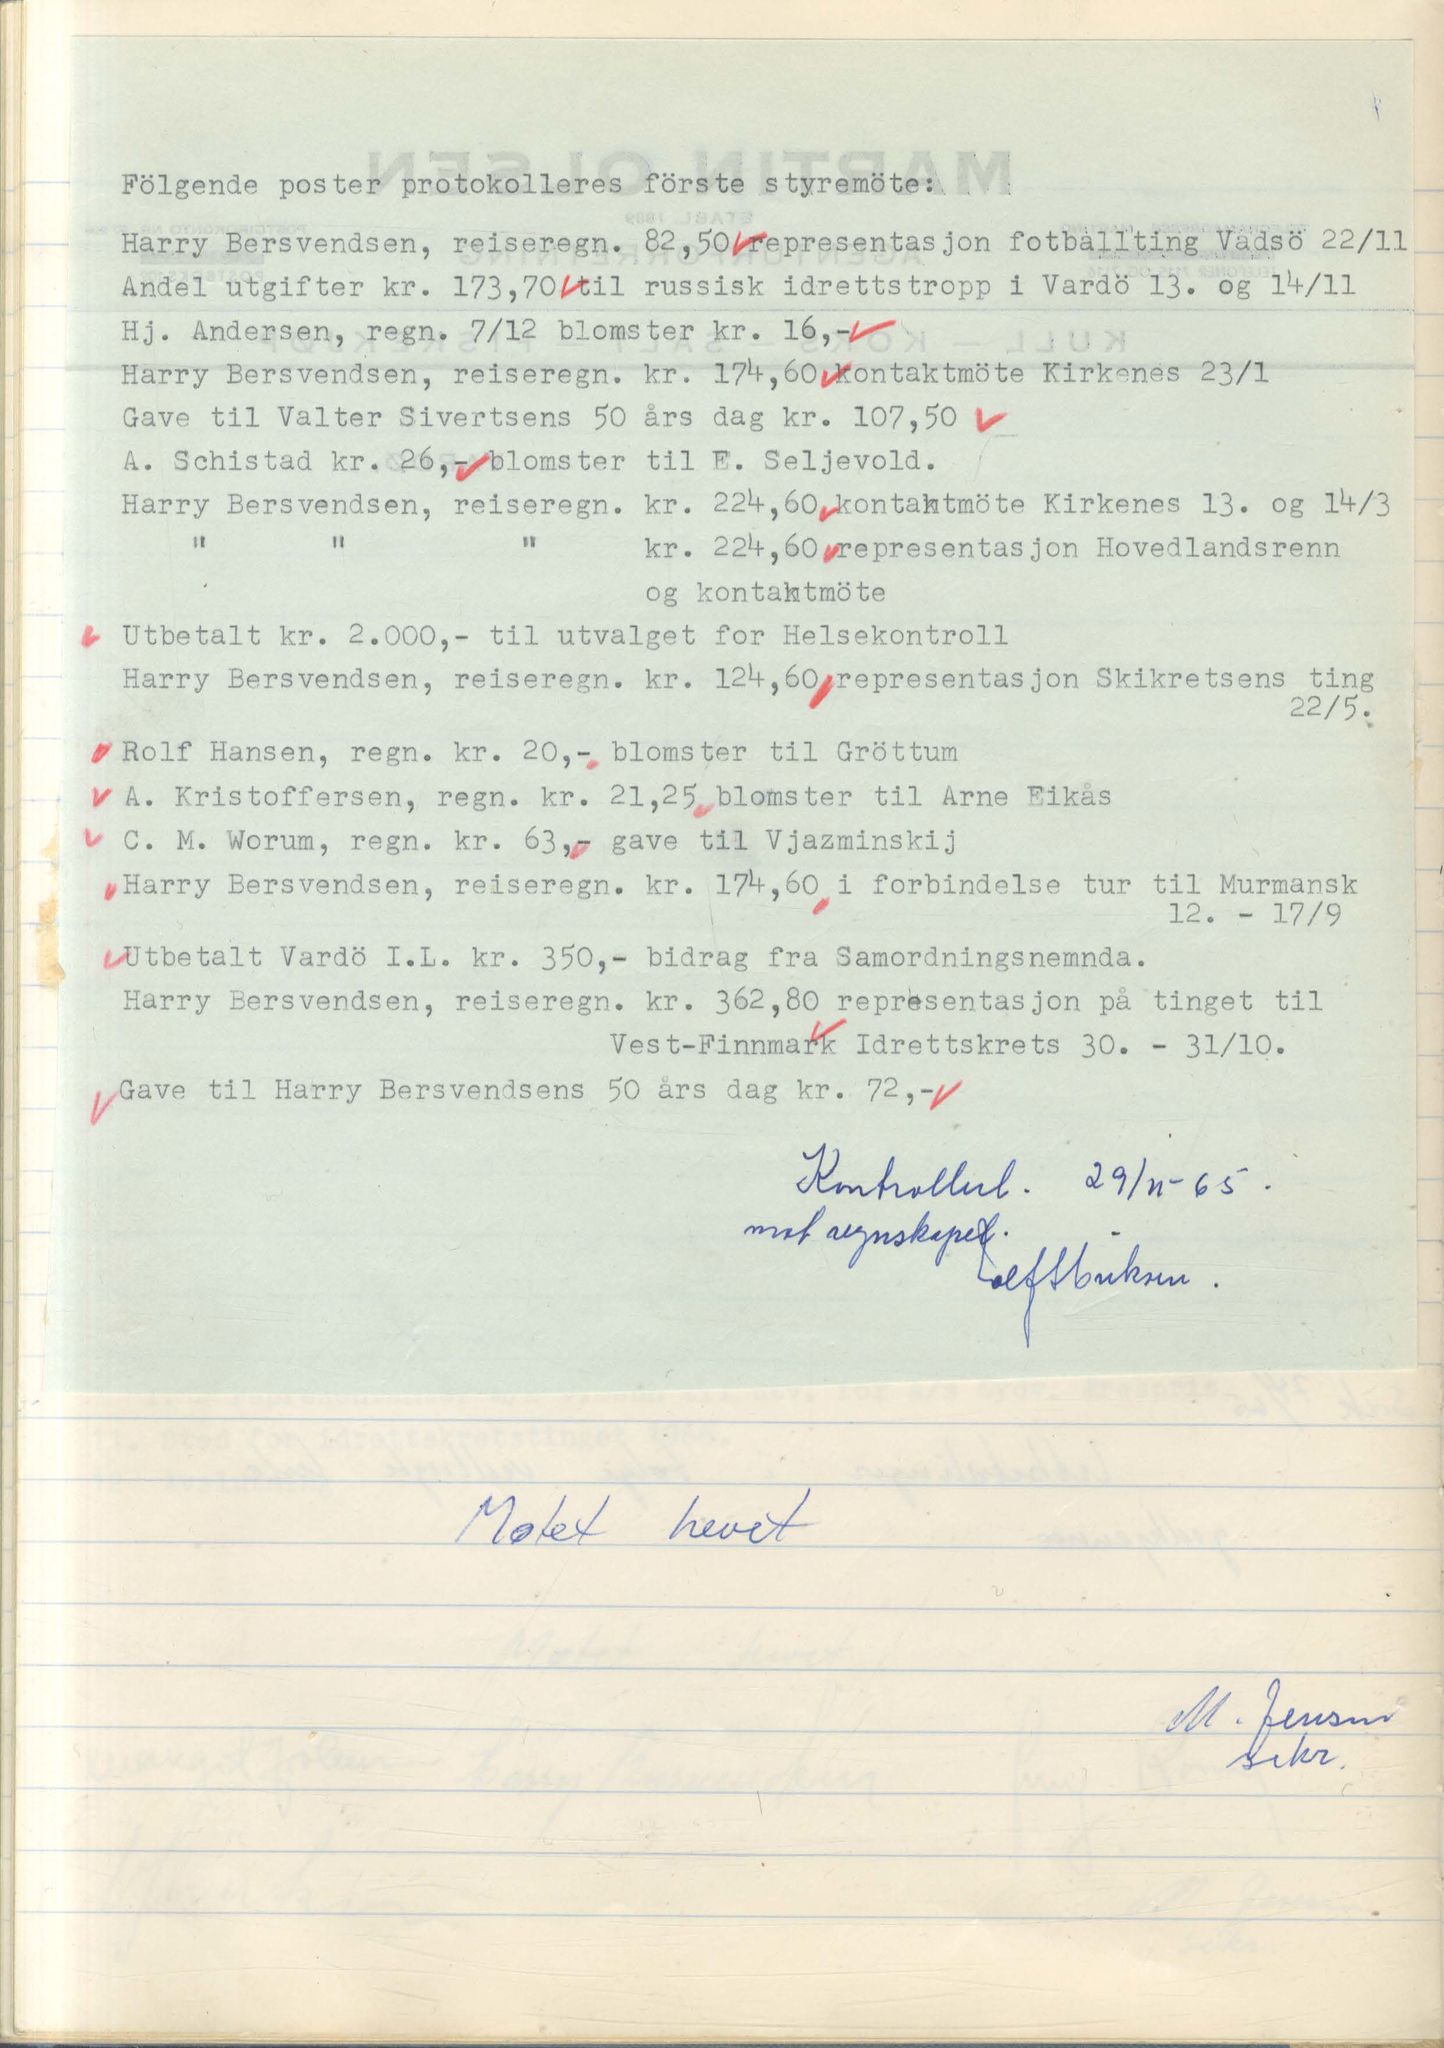 Fölgende poster protokolleres förste styremöte:
Harry Bersvendsen, reiseregn. 82,50 representasjon fotballting Vadsö 22/11
Andel utgifter kr. 173,70 til russisk idrettstropp i Vardö 13. og 14/11
Hj. Andersen, regn. 7/12 blomster kr. 16,-
Harry Bersvendsen, reiseregn. kr. 174,60 kontaktmöte Kirkenes 23/1
Gave til Valter Sivertsens 50 års dag kr. 107,50
A. Schistad kr. 26,- blomster til E. Seljevold.
Harry Bersvendsen, reiseregn. kr. 224,60 kontaktmöte Kirkenes 13. og 14/3
" " " kr. 224,60 representasjon Hovedlandsrenn
og kontaktmöte
Utbetalt kr. 2.000,- til utvalget for Helsekontroll
Harry Bersvendsen, reiseregn. kr. 124,60 representasjon Skikretsens ting
22/5.
Rolf Hansen, regn. kr. 20,- blomster til Gröttum
A. Kristoffersen, regn. kr. 21,25 blomster til Arne Eikås
C. M. Worum, regn. kr. 63,- gave til Vjazminskij
Harry Bersvendsen, reiseregn. kr. 174,60 i forbindelse tur til Murmansk
12. - 17/9
Utbetalt Vardö I.L. kr. 350,- bidrag fra Samordningsnemnda.
Harry Bersvendsen, reiseregn. kr. 362,80 representasjon på tinget til
Vest-Finnmark Idrettskrets 30. - 31/10.
Gave til Harry Bersvendsens 50 års dag kr. 72,-
Kontrollert. 29/11-65.
mot regnskapet.
Møtet hevet
M. Jensen
sekr.
MARTIN OLSEN
ETABL. 1889
AGENTURFORRETNING